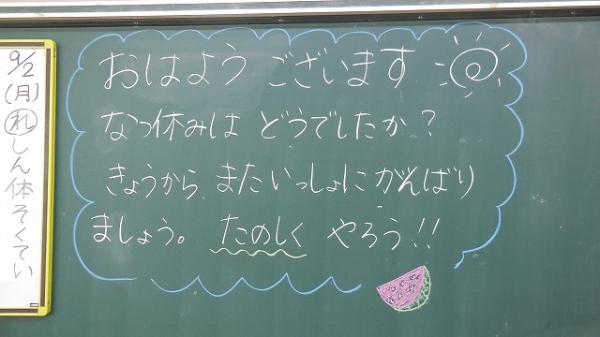 おはよう ございます
なつ休みは どうでしたか?
きょうから またいっしょに がんばり
ましょう。 たのしく やろう!!
9/2
(月)
㊑
しん体そくてい